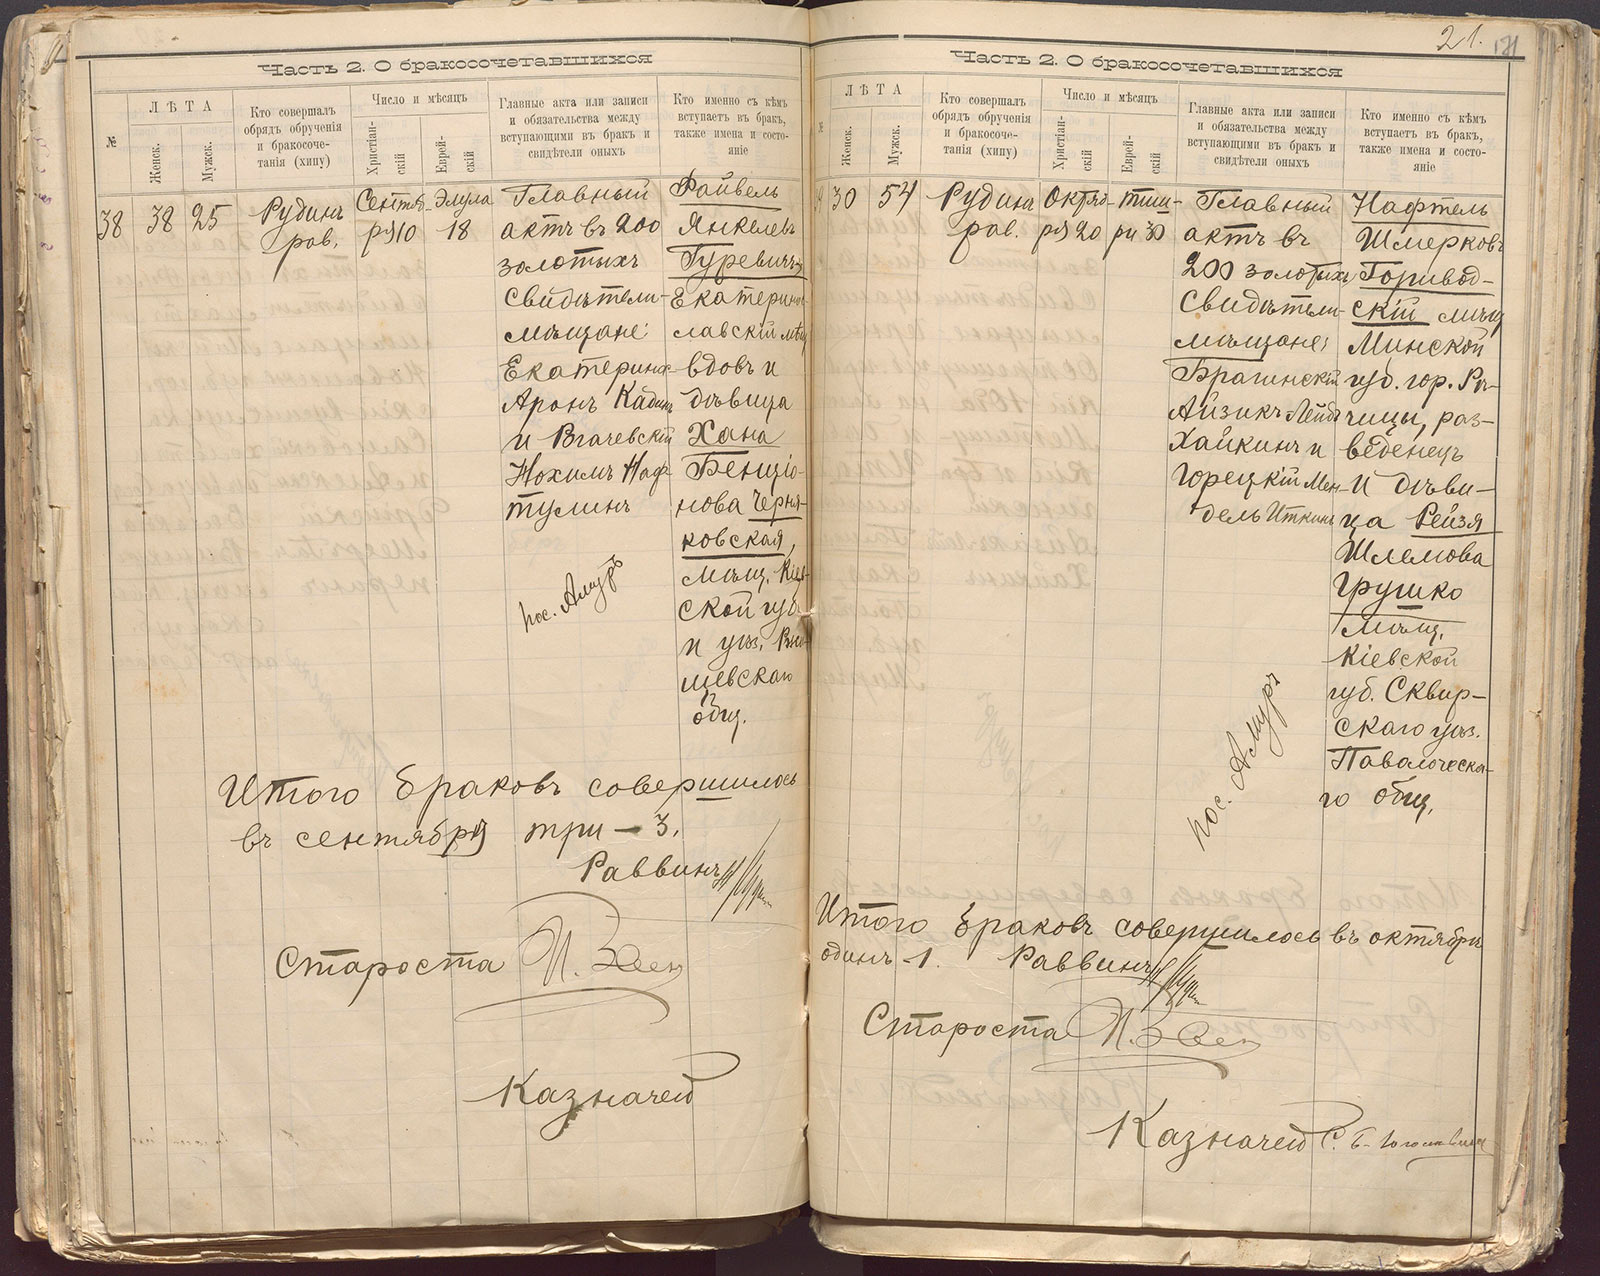 Часть 2. О бракосочетавшихся
№
ЛѢТА
Женск.
Мужск.
Кто совершалъ
обрядъ обрученія
и бракосоче-
танія (хипу)
Число и мѣсяцъ
Христіан-
скій
Еврей-
скій
Главные акта или записи
и обязательства между
вступающими въ бракъ и
свидѣтели оныхъ
Кто именно съ кѣмъ
вступаетъ въ бракъ,
также имена и состо-
яніе
38
38
25
Рудинъ
рав.
Сентяб-
ря 10
Элула
18
Главный
актъ въ 200
золотыхъ
Свидѣтели-
мѣщане:
Екатеринж
Аронъ Кадинъ
и Вгачевскій
Нохимъ Наф-
тулинъ
пос. Амуръ
Файвель
Янкелевъ
Гуревичъ
Екатерино-
славскій мѣщ
вдовъ и
дѣвица
Хана
Бенціо-
нова Черня-
ковская,
мѣщ. Кіев-
ской губ.
и уѣз.
шевскаго
общ.
Итого браковъ совершилось
въ сентябрѣ три - 3.
Раввинъ
Староста
Казначей
21.
Часть 2. О бракосочетавшихся
№
ЛѢТА
Женск.
Мужск.
Кто совершалъ
обрядъ обрученія
и бракосоче-
танія (хипу)
Число и мѣсяцъ
Христіан-
скій
Еврей-
скій
Главные акта или записи
и обязательства между
вступающими въ бракъ и
свидѣтели оныхъ
Кто именно съ кѣмъ
вступаетъ въ бракъ,
также имена и состо-
яніе
30
54
Рудинъ
рав.
Октяб-
ря 20
тиш-
ри 30
Главный
актъ въ
200 золотыхъ
Свидѣтели-
мѣщане:
Брагинскій
Айзикъ Лейба
Хайкинъ и
Горецкій Мен-
дель Иткинъ
пос. Амуръ
Нафтель
Шмерковъ
Горивод-
скій мѣщ
Минской
губ. гор. Рѣ-
чицы, раз-
веденецъ
и дѣви-
ца Рейзя
Шлемова
Грушко
мѣщ.
Кіевской
губ. Сквир-
скаго уѣз.
Паволоческа-
го общ.
Итого браковъ совершилось въ октябрѣ
одинъ - 1. Раввинъ
Староста
Казначей